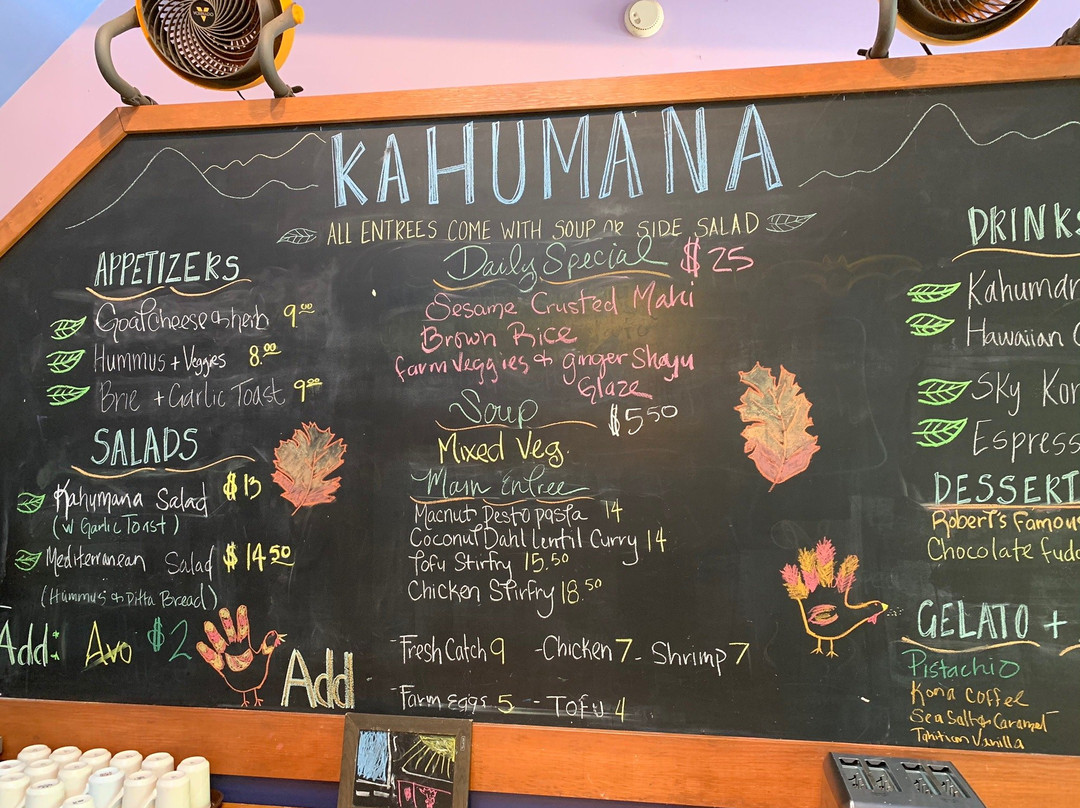 KAHUMANA
ALL ENTREES COME WITH SOUP OR SIDE SALAD
APPETIZERS
Goat Cheese & herb 9.00
Hummus + Veggies 8.00
Brie + Garlic Toast 9.00
SALADS
Kahumana Salad $13
(w Garlic Toast)
Mediterranean Salad $14.50
(Hummus & Pitta Bread)
Add: Avo $2
Daily Special $25
Sesame Crusted Mahi
Brown Rice
farm veggies & ginger Shoyu
Glaze
Soup $5.50
Mixed Veg.
Main Entree
Macnut Pesto pasta 14
Coconut Dahl lentil Curry 14
Tofu Stirfry 15.50
Chicken Stirfry 18.50
Add
- Fresh Catch 9 - Chicken 7 - Shrimp 7
- Farm Eggs 5 -- Tofu 4
DRINKS
Kahuman
Hawaiian
Sky Kom
Espress
DESSERT
Robert's Famous
Chocolate fudg
GELATO +
Pistachio
Kona Coffee
Sea Salt & Caramel
Tahitian Vanilla